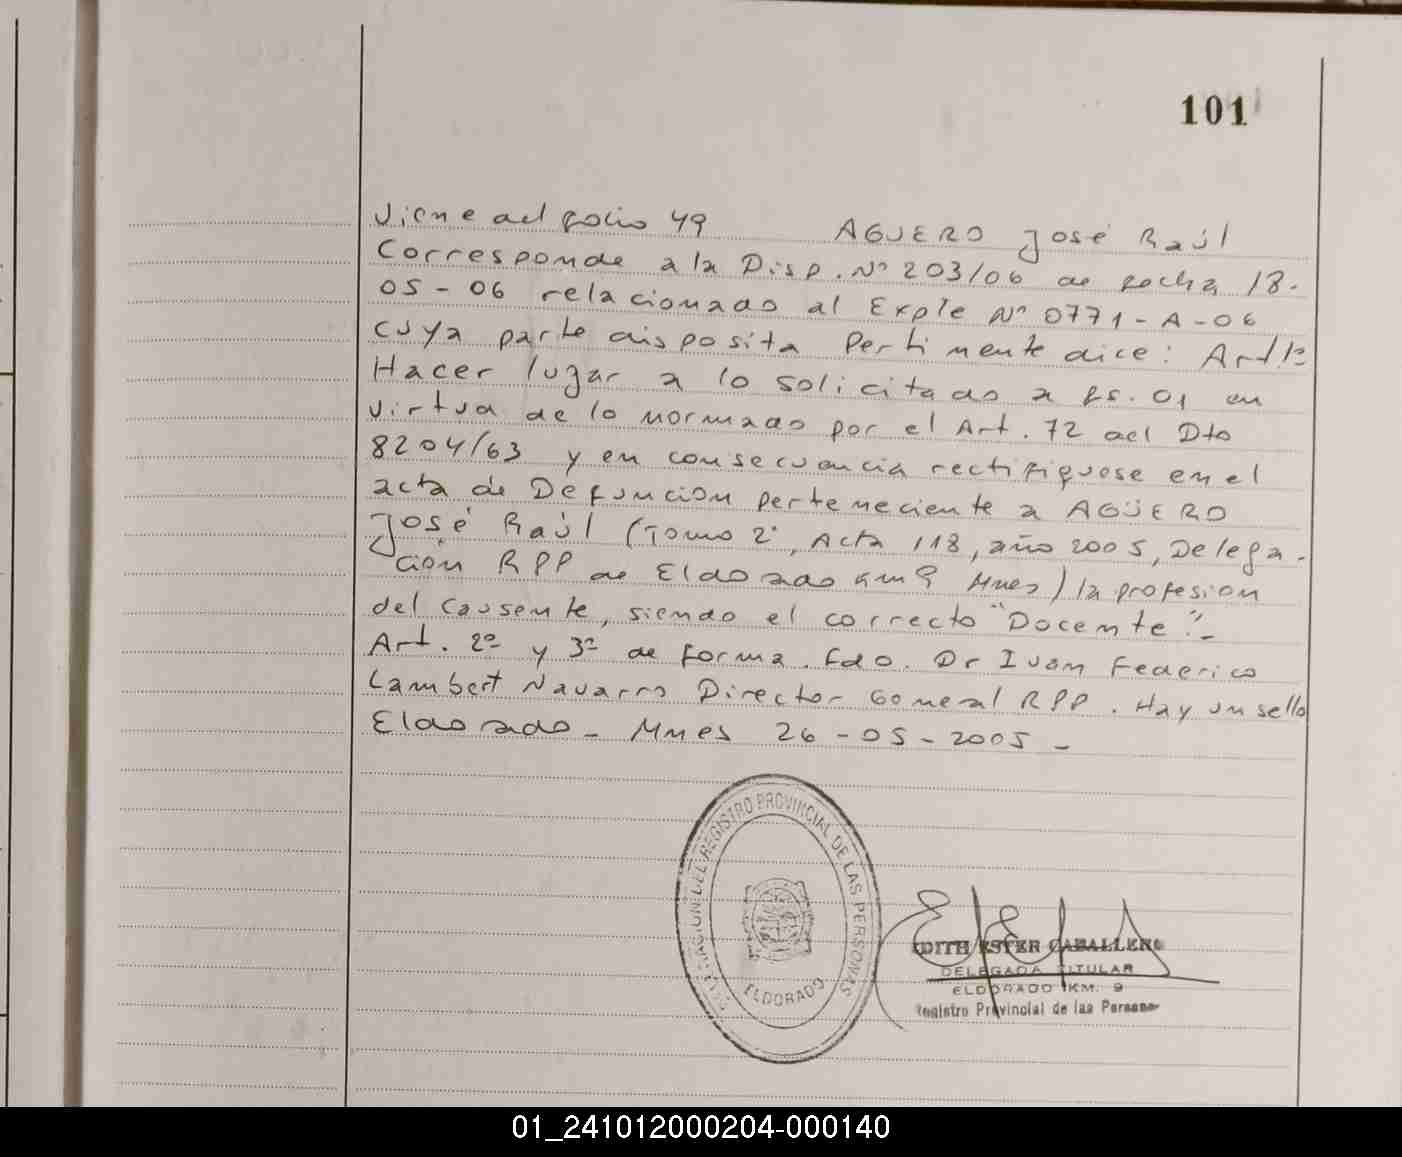 101
Viene del folio 49 AGUERO José Raúl
Corresponde a la Disp. Nº 203/06 de fecha 18-
05-06 relacionado al Expte Nº 0771-A-06
cuya parte disposita Pertinente dice: Art 1º
Hacer lugar a lo solicitado a fs. 01 en
virtud de lo normado por el Art. 72 del Dto
8204/63 y en consecuencia rectifiquese en el
acta de Defunción perteneciente a AGÜERO
José Raúl (Tomo 2º, Acta 118, año 2005, Delega-
ción RPP de Eldorado km 9 Mnes) la profesion
del causente, siendo el correcto "Docente".-
Art. 2º y 3º de forma. Fdo. Dr Ivan Federico
Lambert Navarro Director General RPP. Hay un sello
Eldorado - Mnes 26-05-2005-
DELEGACION DEL REGISTRO PROVINCIAL DE LAS PERSONAS
ELDORADO
EDITH ESTER CABALLERO
DELEGADA TITULAR
ELDORADO KM. 9
Registro Provincial de las Personas
01_241012000204-000140